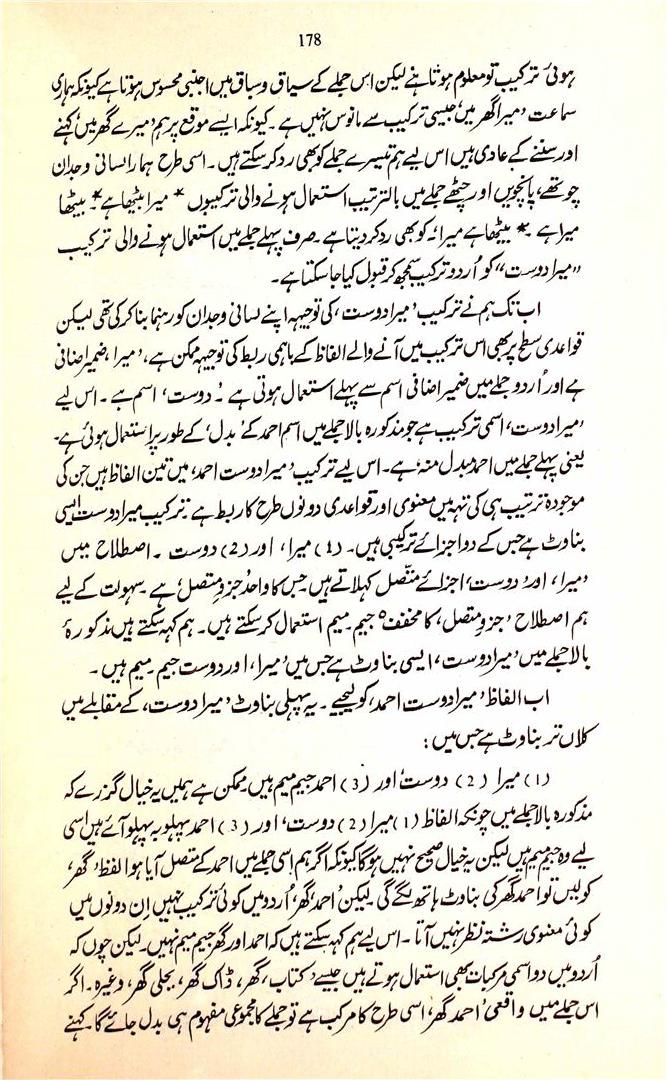 178
ہوئی ترکیب تو معلوم ہوتا ہے لیکن اس جملے کے سیاق و سباق میں اجنبی محسوس ہوتا ہے کیونکہ ہماری
سماعت ’میرا گھر میں‘ جیسی ترکیب سے مانوس نہیں ہے ۔ کیونکہ ایسے موقع پر ہم ’میرے گھر میں‘ کہنے
اور سننے کے عادی ہیں اس لیے ہم تیسرے جملے کو بھی رد کر سکتے ہیں ۔ اسی طرح ہمارا لسانی وجدان
چوتھے، پانچویں اور چھٹے جملے میں بالترتیب استعمال ہونے والی ترکیبوں * میرا بیٹھا ہے * ۔ بیٹھا
میرا ہے ۔ * بیٹھا ہے میرا ۔ کو بھی رد کر دیتا ہے ۔ صرف پہلے جملے میں استعمال ہونے والی ترکیب
”میرا دوست“ کو اُردو ترکیب سمجھ کر قبول کیا جا سکتا ہے۔
اب تک ہم نے ترکیب ’میرا دوست‘ کی توجیہہ اپنے لسانی وجدان کو رہنما بنا کر کی تھی لیکن
قواعدی سطح پر بھی اس ترکیب میں آنے والے الفاظ کے باہمی ربط کی توجیہہ ممکن ہے، ’میرا‘ ضمیر اضافی
ہے اور اُردو جملے میں ضمیر اضافی اسم سے پہلے استعمال ہوتی ہے ۔ ’دوست‘ اسم ہے ۔ اس لیے
’میرا دوست‘ اسمی ترکیب ہے جو مذکورہ بالا جملے میں اسم احمد کے ’بدل‘ کے طور پر استعمال ہوئی ہے۔
یعنی پہلے جملے میں احمد ’مبدل منہ‘ ہے۔ اس لیے ترکیب ’میرا دوست احمد‘ میں تین الفاظ ہیں جن کی
موجودہ ترتیب ہی کی تہہ میں معنوی اور قواعدی دونوں طرح کا ربط ہے ۔ ترکیب میرا دوست ایسی
بناوٹ ہے جس کے دو اجزائے ترکیبی ہیں ۔ (1) میرا ، اور (2) دوست ۔ اصطلاح میں
’میرا‘ اور ’دوست‘ اجزائے متصل کہلاتے ہیں جس کا واحد ’جزوِ متصل‘ ہے ۔ سہولت کے لیے
ہم اصطلاح ’جزوِ متصل‘ کا مخفف ’جیم ۔ میم استعمال کر سکتے ہیں ۔ ہم کہہ سکتے ہیں مذکورۂ
بالا جملے میں ’میرا دوست‘ ایسی بناوٹ ہے جس میں ’میرا‘ اور دوست جیم ۔ میم ہیں ۔
اب الفاظ ’میرا دوست احمد‘ کو لیجیے ۔ یہ پہلی بناوٹ ’میرا دوست‘ کے مقابلے میں
کلاں تر بناوٹ ہے جس میں :
(1) میرا (2) دوست اور (3) احمد جیم میم ہیں۔ ممکن ہے ہمیں یہ خیال گزرے کہ
مذکورہ بالا جملے میں چونکہ الفاظ (1) میرا (2) دوست‘ اور (3) احمد پہلو بہ پہلو آئے ہیں اسی
لیے وہ جیم میم ہیں لیکن یہ خیال صحیح نہیں ہوگا کیونکہ اگر ہم اسی جملے میں احمد کے متصل آیا ہوا لفظ ’گھر‘
کو لیں تو احمد گھر کی بناوٹ ہاتھ لگے گی ۔ لیکن ’احمد گھر‘ اُردو میں کوئی ترکیب نہیں اِن دونوں میں
کوئی معنوی رشتہ نظر نہیں آتا ۔ اس لیے ہم کہہ سکتے ہیں کہ احمد اور گھر جیم میم نہیں۔ لیکن چوں کہ
اُردو میں دو اسمی مرکبات بھی استعمال ہوتے ہیں جیسے ’کتاب گھر‘ ڈاک گھر، بجلی گھر، وغیرہ ۔ اگر
اس جملے میں واقعی ’احمد گھر‘ اسی طرح کا مرکب ہے تو جملے کا مجموعی مفہوم ہی بدل جائے گا۔ کہنے